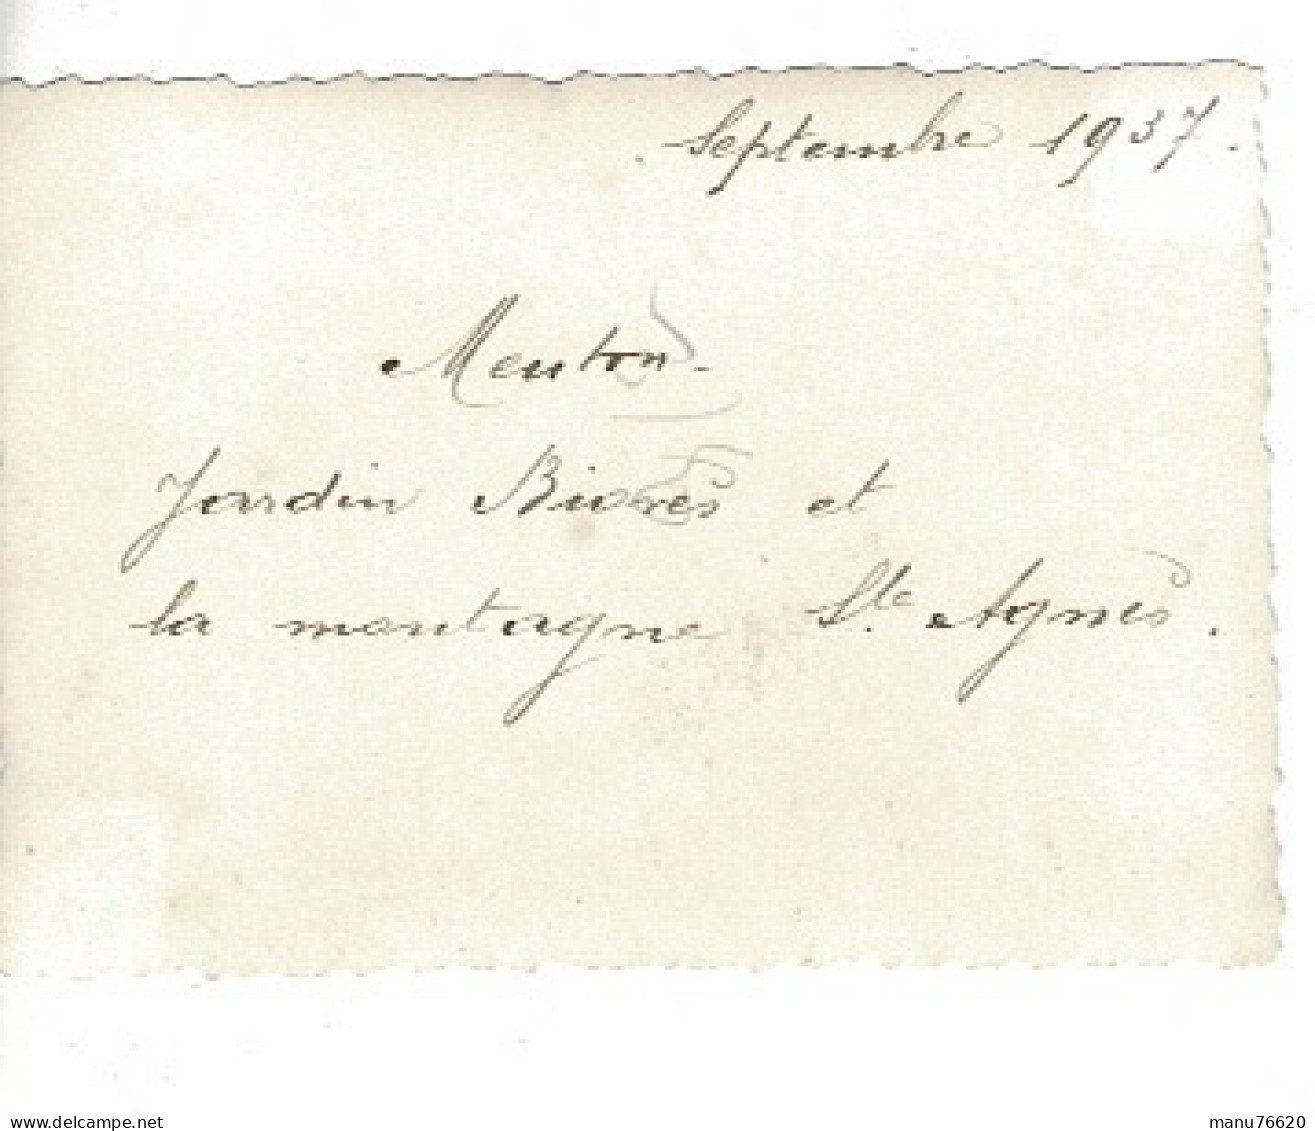 Septembre 1937.
Menton.
Jardin Biovès et
la montagne Ste. Agnès.
delcampe.net
manu76620